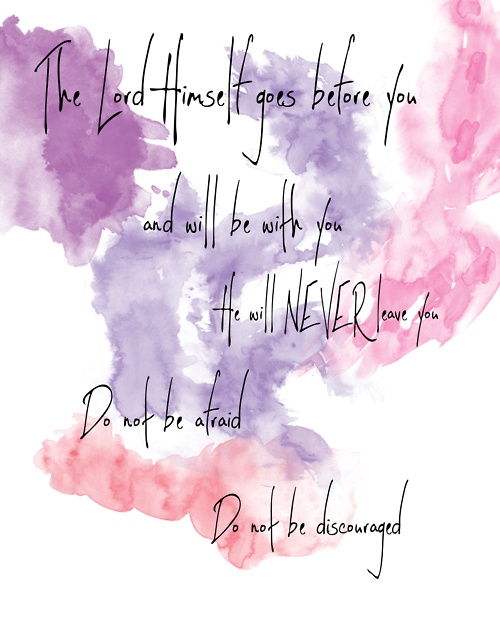 The Lord Himself goes before you
and will be with you
He will NEVER leave you
Do not be afraid
Do not be discouraged